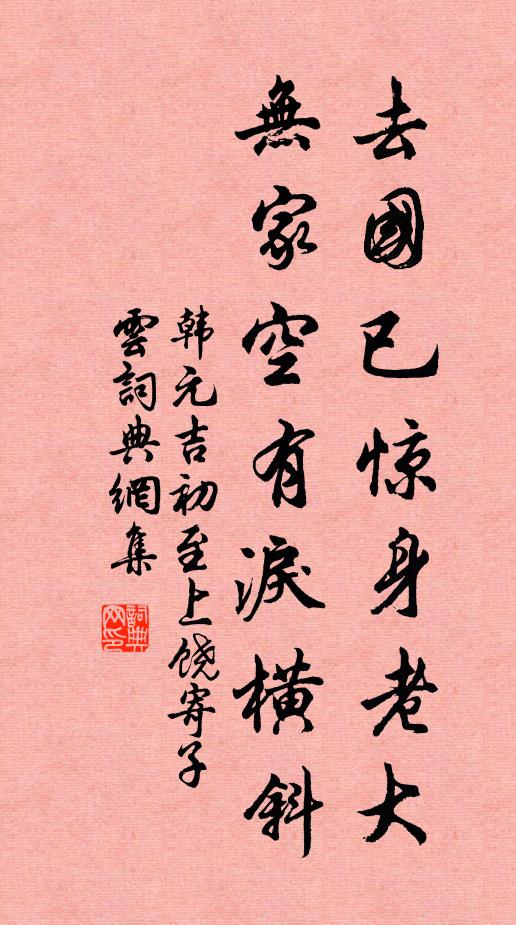 去國已惊身老大
無家空有淚橫斜
韩元吉初至上饶寄子
雲詞典網集
詞典網印